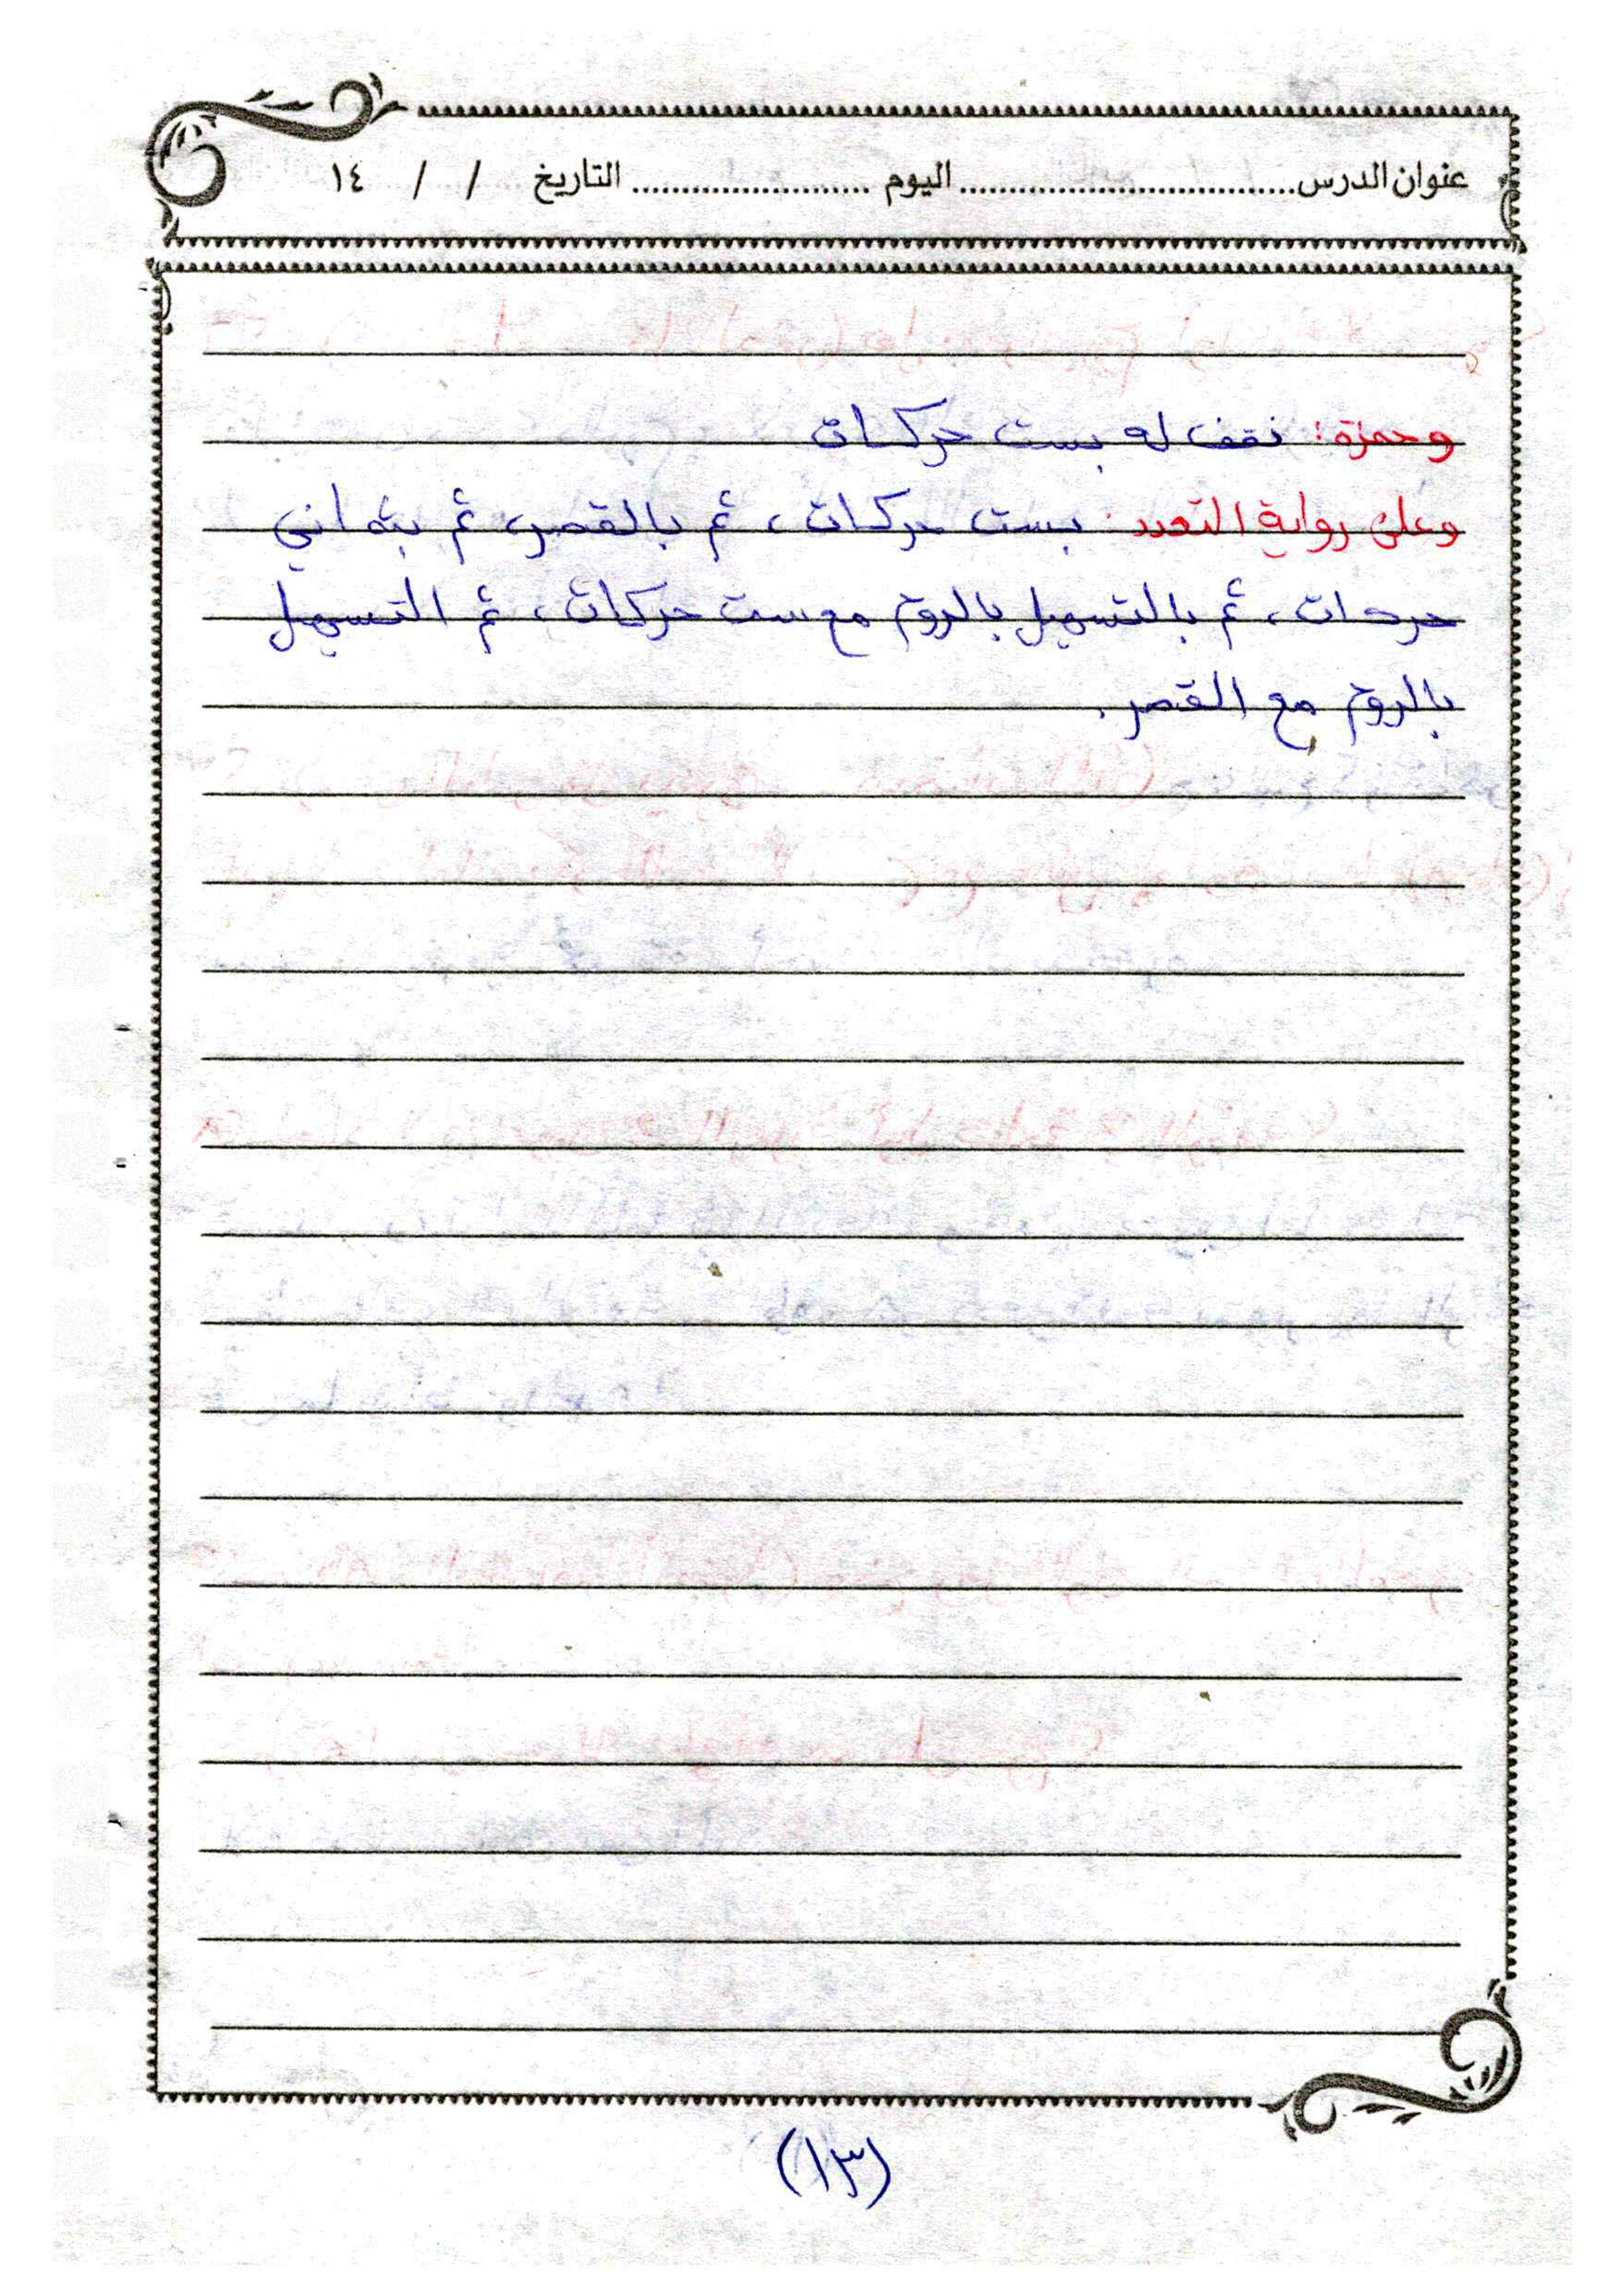 عنوان الدرس................................اليوم ........................التاريخ / / ١٤
وحمزة: نقف له بست حركات
وعلى رواية التعدد: بست حركات، ثم بالقصر، ثم بثماني
حركات، ثم بالتسهيل بالروم مع ست حركات، ثم التسهيل
بالروم مع القصر.
(١٣)